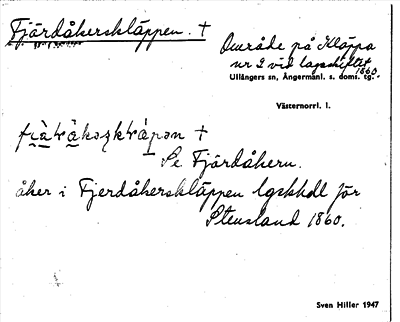 Fjärdåkersklāppen. †
Område på Kläppa
nr 2 vid lagaskiftet
1860.
Ullångers sn, Ångermanl. s. doms. tg.
Västernorrl. l.
†
Se Fjärdåkern.
åker i Fjerdåkersklāppen lgskhdl för
Stensland 1860.
Sven Hiller 1947